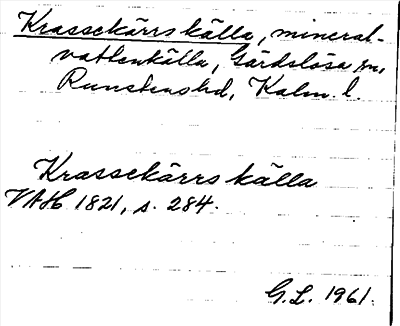 Krassekärrs källa, mineral-
vattenkälla, Gärdslösa sn,
Runstens hd, Kalm. l.
Krassekärrs källa
VAH 1821, s. 284.
G.L. 1961.